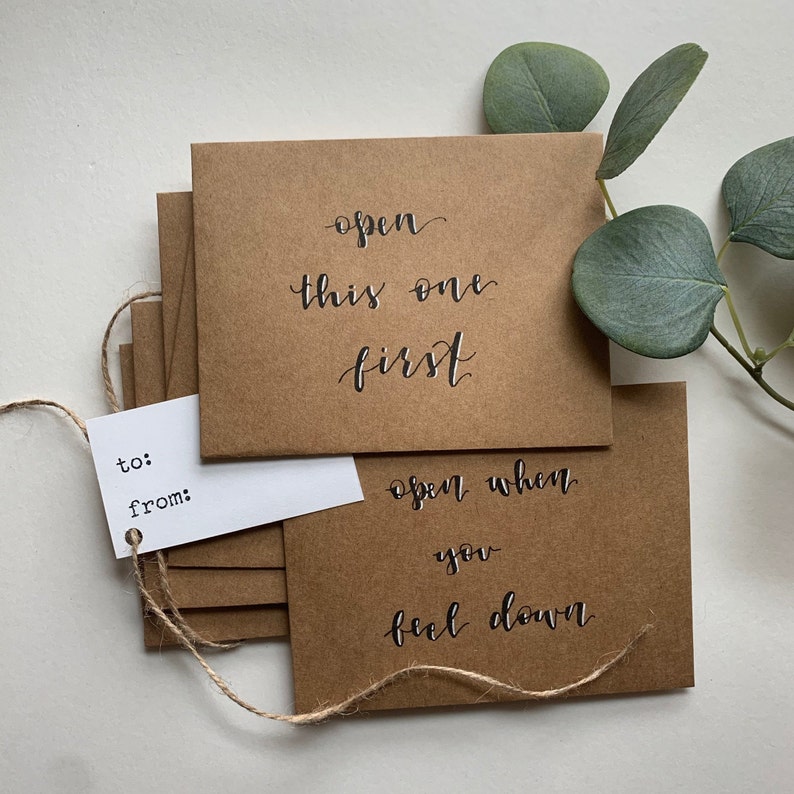 open
this one
first
to:
from:
open when
you
feel down